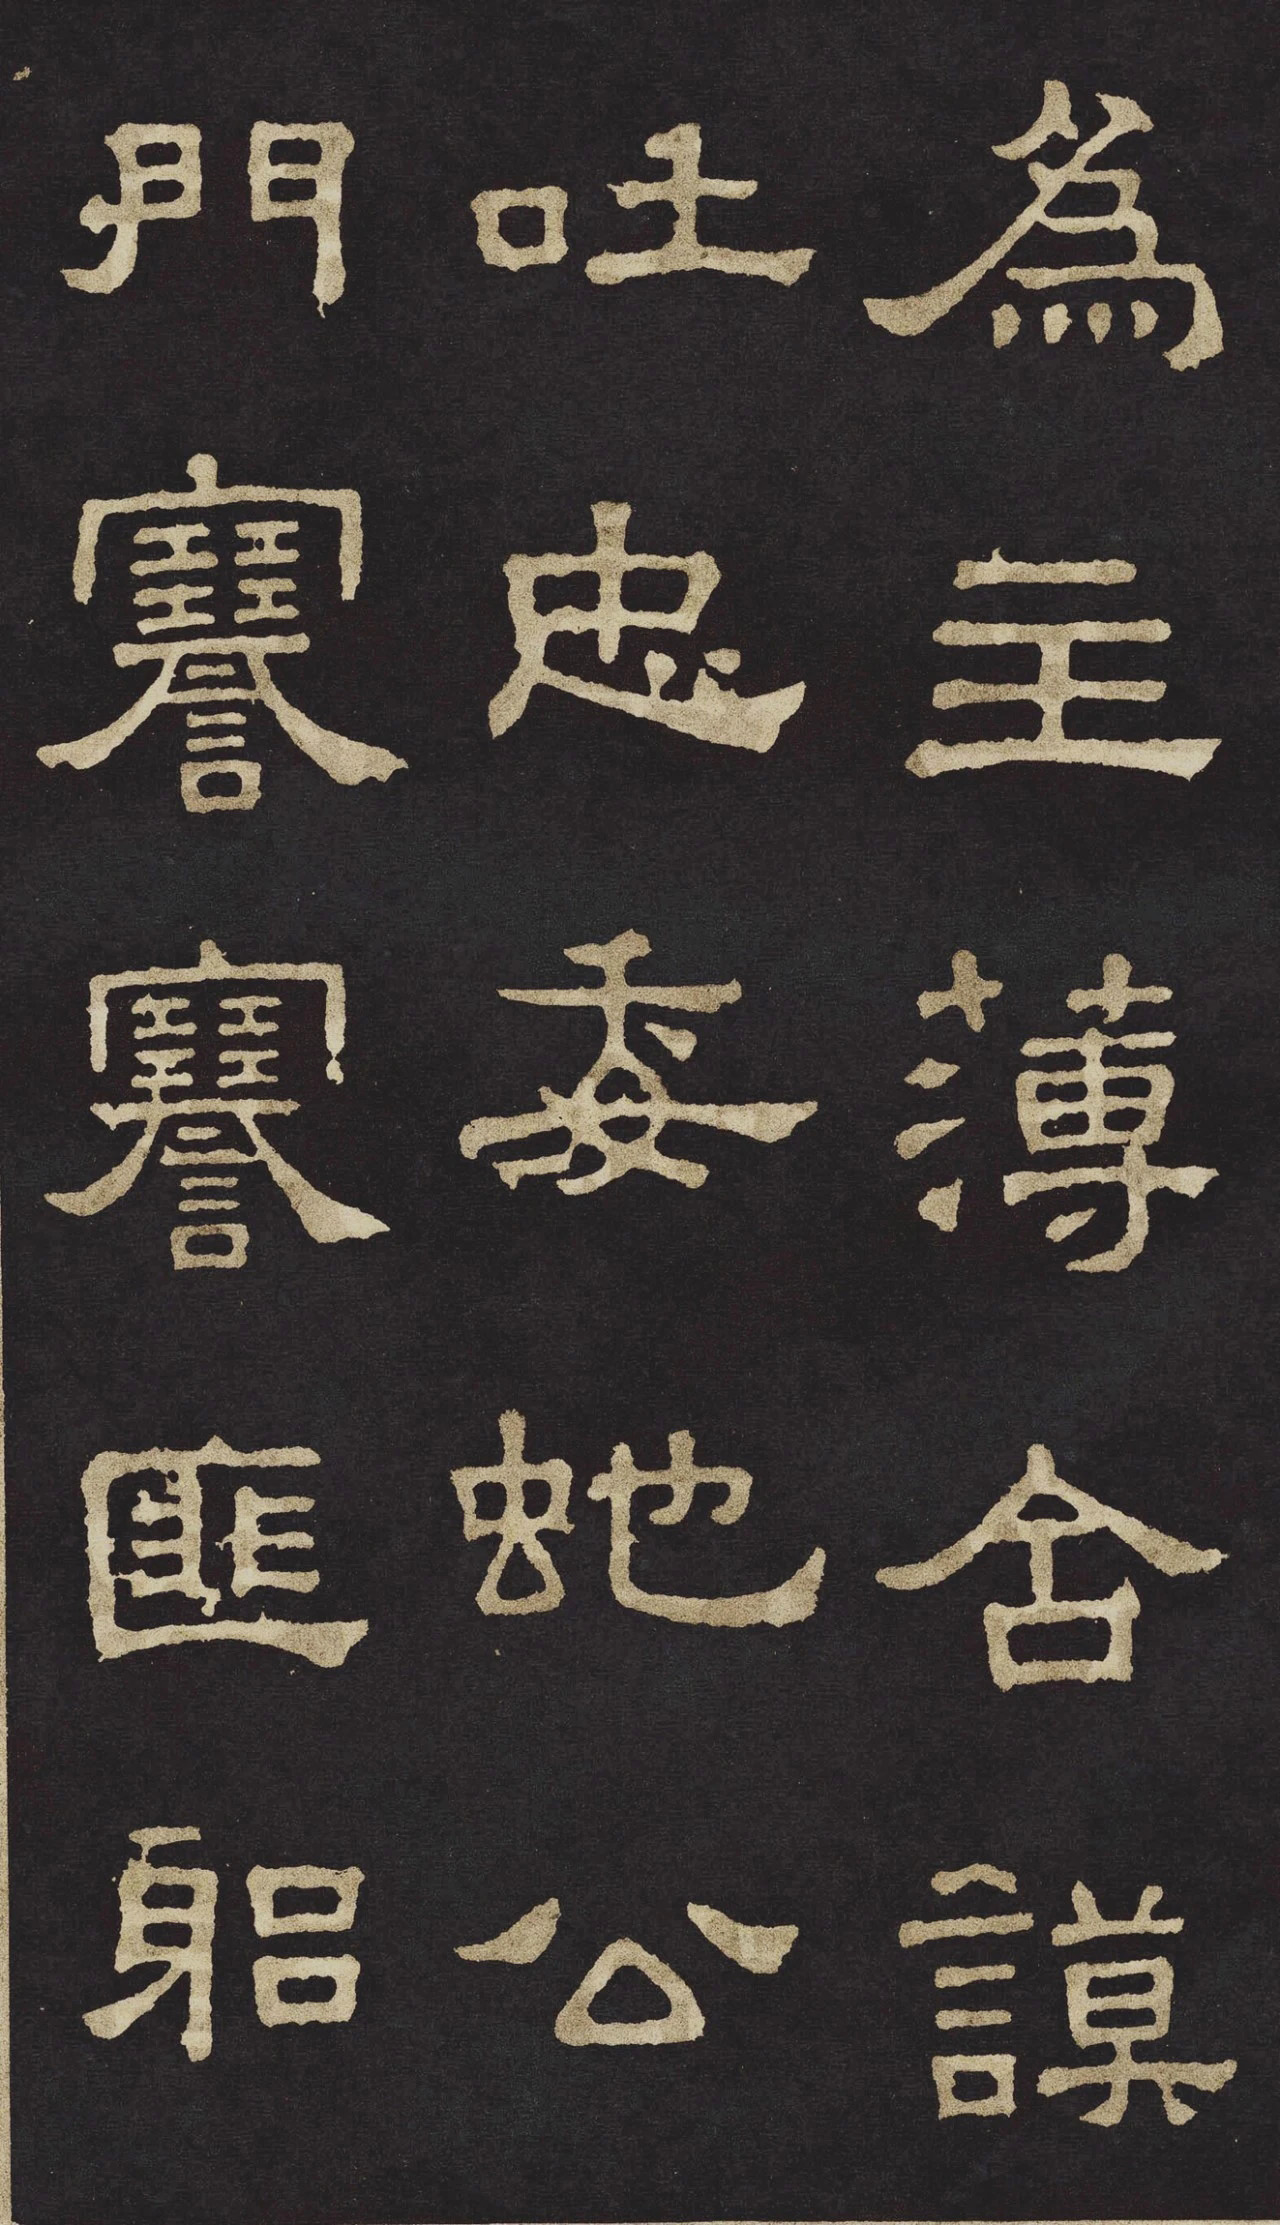 為主薄含謨
吐忠委蛇公
門謇謇匪躳